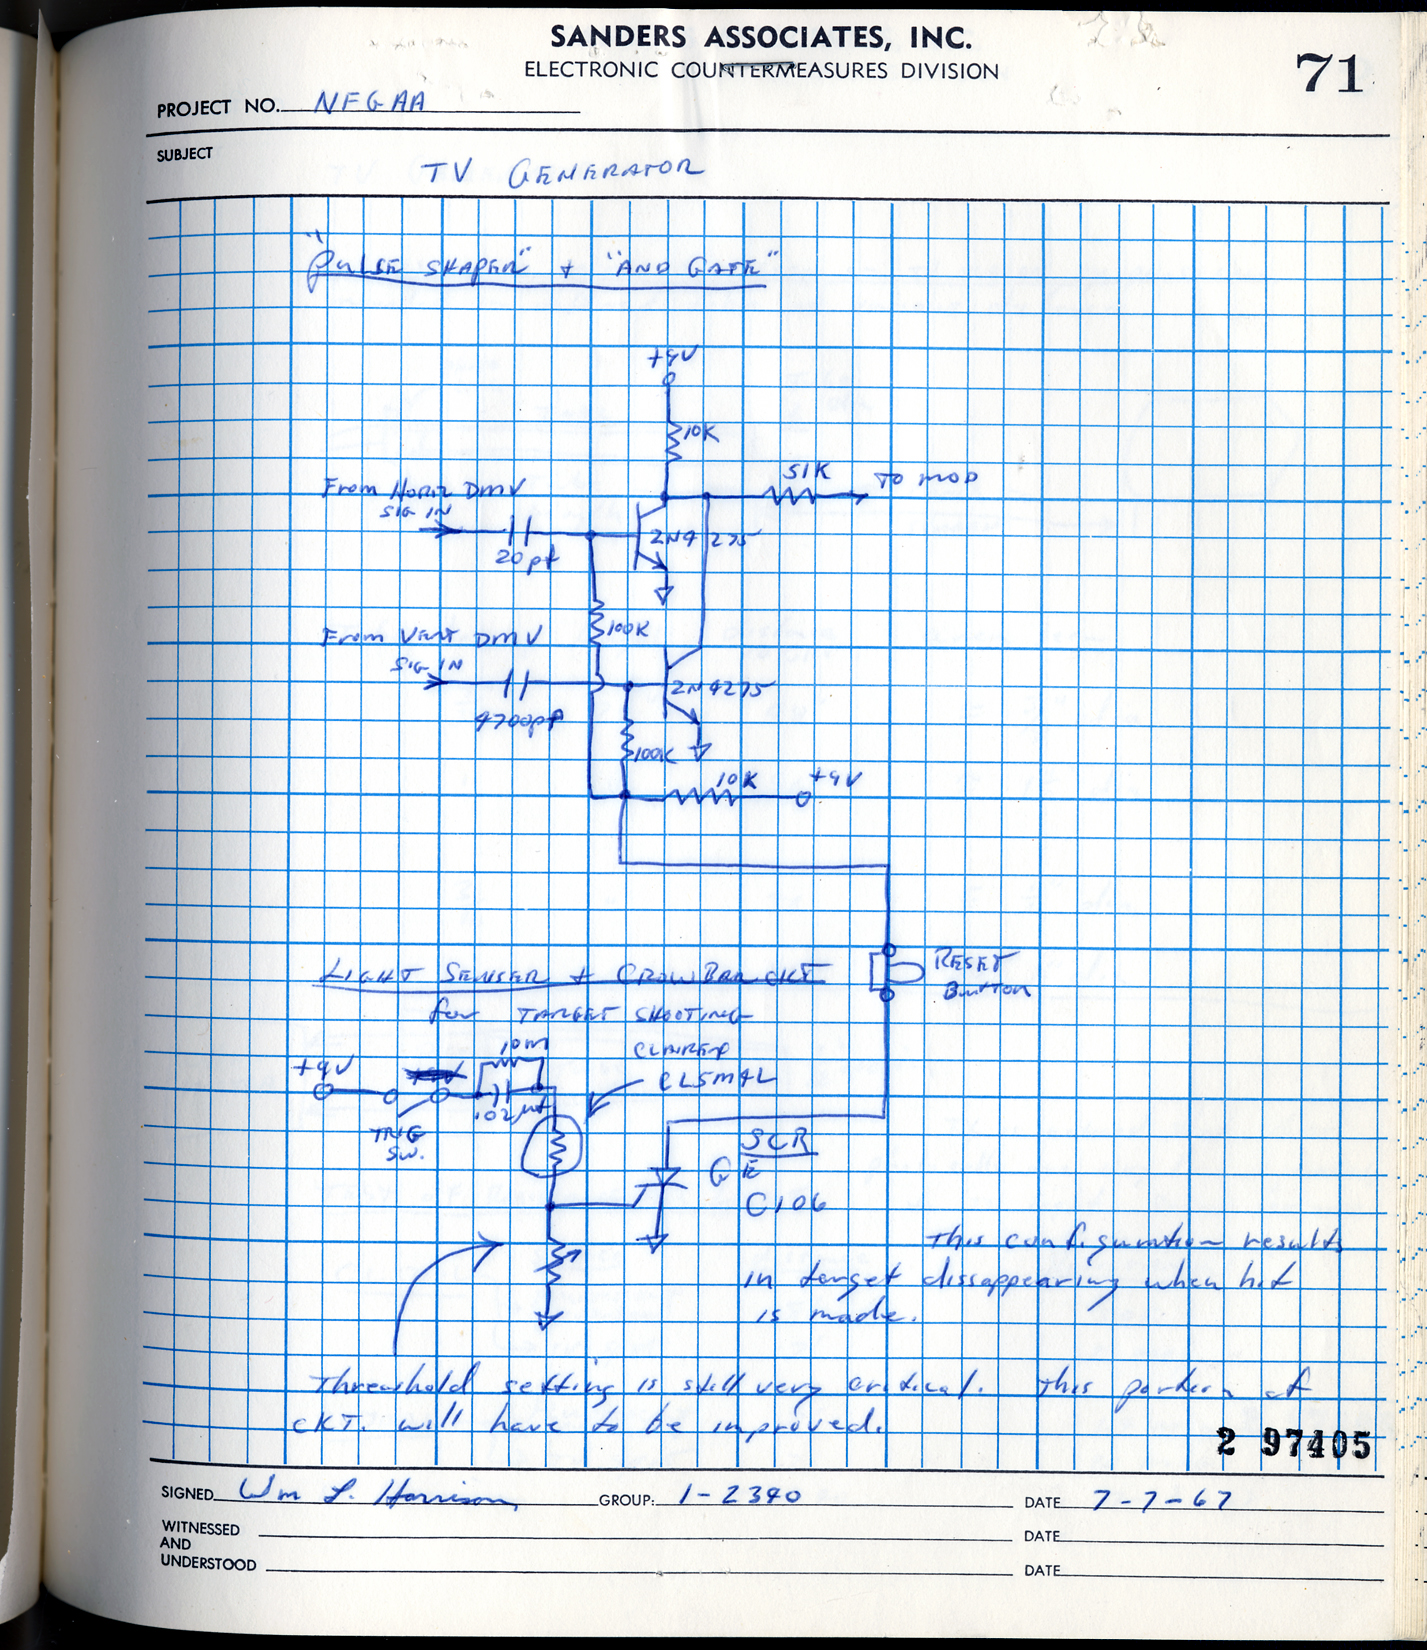 SANDERS ASSOCIATES, INC.
ELECTRONIC COUNTERMEASURES DIVISION
71
PROJECT NO. NFGAA
SUBJECT
TV GENERATOR
"PULSE SHAPER" + "AND GATE"
+9V
10K
51K
TO MOD
From Horiz DMV
SIG IN
20pf
2N4275
100K
From Vert DMV
SIG IN
4700pf
2N4275
100K
10K
+9V
LIGHT SENSER + CROWBAR CKT
for TARGET SHOOTING
RESET
Button
10M
CLAIREX
CL5M4L
+9V
.02µf
TRIG
SW.
SCR
GE
C106
This configuration results
in target dissappearing when hit
is made.
Threshold setting is still very critical. This portion of
CKT. will have to be improved.
2 97405
SIGNED Wm L. Harrison GROUP: 1-2340 DATE 7-7-67
WITNESSED
AND
UNDERSTOOD
DATE
DATE